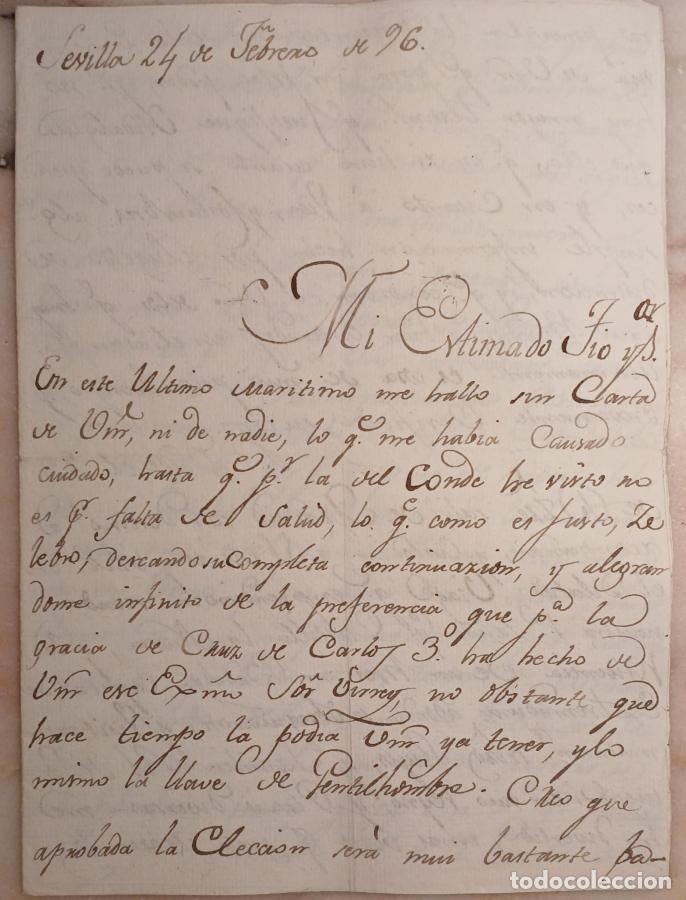 Sevilla 24 de Febrero de 96.
Mi Estimado Tio y S.or
En este Ultimo Maritimo me hallo sin Carta
de Vm, ni de nadie, lo q.e me habia Causado
cuidado, hasta q.e p.r la del Conde he visto no
es p.r falta de Salud, lo q.e como es justo, Ze
lebro, deseando su Completa continuazion, y alegran
dome infinito de la preferencia que p.a la
gracia de Cruz de Carlos 3.o ha hecho de
Vm ese Exmo Sor Virrey, no obstante que
hace tiempo la podia Vm ya tener, y lo
mismo la llave de Gentilhombre. Creo que
aprobada la Eleccion será mui bastante pa-
todocoleccion.net